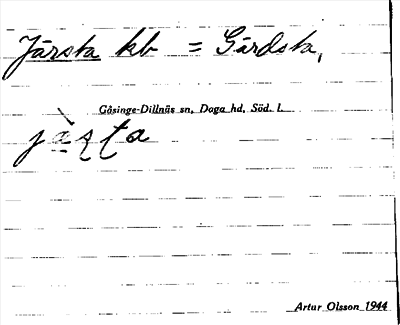 Järsta kb = Gärdsta,
Gåsinge-Dillnäs sn, Daga hd, Söd. l.
jàʂʈa
Artur Olsson 1944